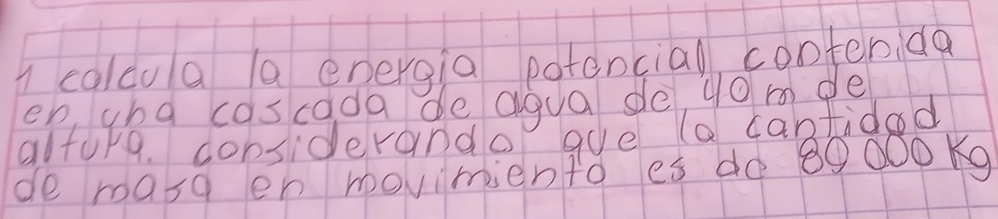 1 calcula la energia potencial contenida
en una cascada de agua de 40 m de
altura. considerando que la cantidad
de masa en movimiento es de 89 000 Kg